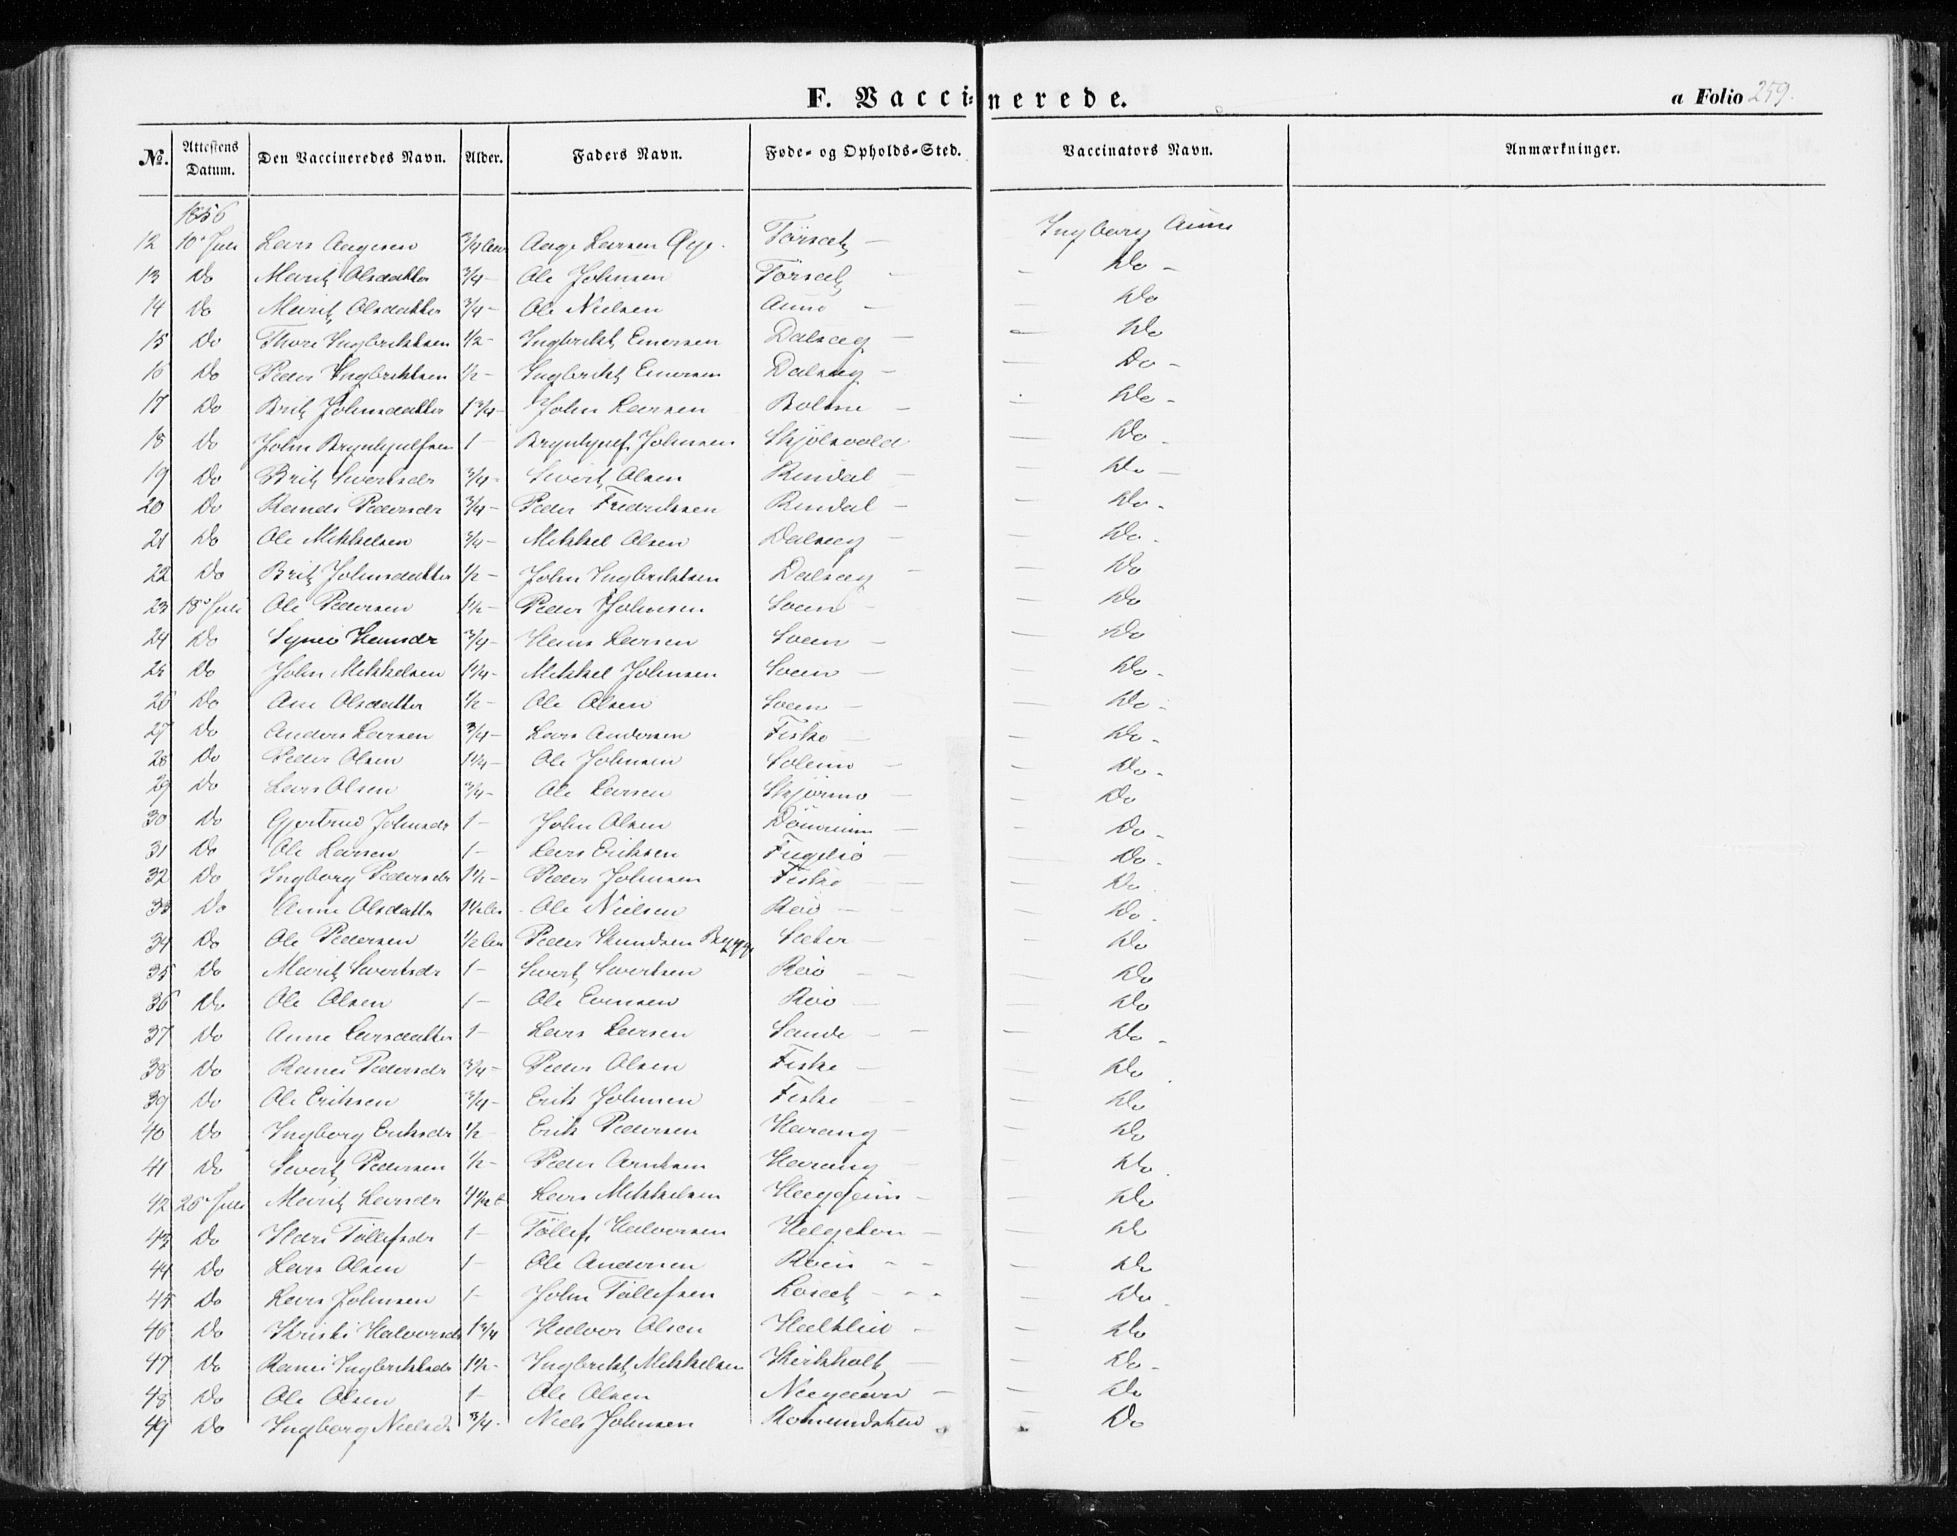 F. Vaccinerede.
a Folio 259.
No. Attestens Datum. Den Vaccineredes Navn. Alder. Faders Navn. Føde- og Opholds-Sted. Vaccinators Navn. Anmærkninger.
1856
12 10de Juli Lars Aagesen 3/4 Aar Aage Larsen Øye Tørsæt — Ingborg Aune
13 Do Marit Olsdatter 3/4 - Ole Johnsen Tørsæt — — Do -
14 Do Marit Olsdatter 3/4 - Ole Nielsen Aune — — Do
15 Do Thore Ingbriktsen 1/2 - Ingbrikt Einersen Dalsæg — — Do
16 Do Peder Ingbriktsen 1/2 - Ingbrikt Einersen Dalsæg — — Do -
17 Do Brit Johnsdatter 1 3/4 - John Larsen Bolme — Do -
18 Do John Brynhyulfsen 1 - Brynhyulf Johnsen Skjølsvold — Do -
19 Do Brit Sivertsdr 3/4 - Sivert Olsen Rindal — — Do —
20 Do Randi Pedersdr 3/4 - Peder Fredriksen Rindal — — Do -
21 Do Ole Mikkelsen 3/4 - Mikkel Olsen Dalsæg — — Do -
22 Do Brit Johnsdatter 1/2 - John Ingbriktsen Dalsæg — — Do
23 18de Juli Ole Pedersen 1 1/2 - Peder Johnsen Soen — — Do
24 Do Hansdr 3/4 - Hans Larsen Soen — — Do
25 Do John Mikkelsen 1 1/4 - Mikkel Johnsen Soen — — Do -
26 Do Ane Olsdatter 1/2 - Ole Olsen Soen — — Do -
27 Do Anders Larsen 3/4 - Lars Andersen Fiske — — Do -
28 Do Peder Olsen 1 1/4 - Ole Johnsen Solem — — Do -
29 Do Lars Olsen 3/4 - Ole Larsen Skjørmo — — Do
30 Do Gjertrud Johnsdr 1 - John Olsen — — Do -
31 Do Ole Larsen 1 - Lars Eriksen Fuglsø — — Do -
32 Do Ingborg Pedersdr 1 1/2 - Peder Johnsen Fiske — — Do
33 Do Anne Olsdatter 1 1/2 Aar Ole Nielsen Røe — — Do -
34 Do Ole Pedersen 1/2 Aar Peder Knudsen Bæger Sæter — — Do
35 Do Marit Sivertsdr 1 - Sivert Sivertsen Røe — — Do
36 Do Ole Olsen 1 - Ole Evensen Røe — — Do
37 Do Anne Larsdatter 1 - Lars Larsen Sande — — Do -
38 Do Rannei Pedersdr 3/4 - Peder Olsen Fiske — — Do
39 Do Ole Eriksen 3/4 - Erik Johnsen Fiske — — Do
40 Do Ingborg Eriksdr 1/2 - Erik Pedersen Harang — — Do
41 Do Sivert Pedersen 1/2 - Peder Arntsen Harang — Do
42 26de Juli Marit Larsdr 1 1/2 Lars Mikkelsen — — Do
43 Do Tøllefsdr 1 - Tøllef Halvorsen Helgeton — — Do
44 Do Lars Olsen 1 - Ole Andersen Røen — — Do
45 Do Lars Johnsen 1 - John Tøllefsen Loset — — Do
46 Do Kristi Halvorsdr 1 3/4 Halvor Olsen Haltlid — — Do
47 Do Rannei Ingbriktsdr 1 1/2 - Ingbrikt Mikkelsen Kirkholt — — Do -
48 Do Ole Olsen 1 - Ole Olsen Nygaarn — — Do
49 Do Ingborg Nielsdr 3/4 - Niels Johnsen Romundstad Do